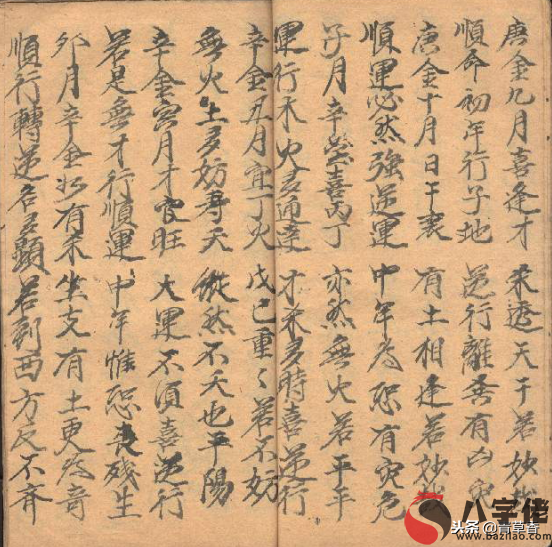 庚金九月喜逢才 未透天干若妙哉
順命初年行子地 逆行離秀有凶灾
庚金十月日干衰 有土相逢若妙哉
順運必然強逆運 中年為恐有灾危
子月辛金喜丙丁 亦然無火若平平
運行木火多通達 才未多時喜逆行
辛金丑月宜丁火 戊己重々若不妨
無火生多妨壽夭 縱然不夭也平陽
辛金寅月才官旺 大運不須喜逆行
若是無才行順運 中年惟恐丧残生
卯月辛金 有未 坐支有土更為奇
順行轉逆名多顯 若到西方反不齊
八字佬
www.bazilao.com
头条